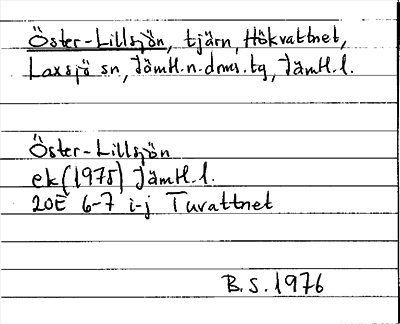 Öster-Lillsjön, tjärn, Hökvattnet,
Laxsjö sn, Jämtl.n.dms.tg, Jämtl.l.
Öster-Lillsjön
ek (1975) Jämtl.l.
20E 6-7 i-j Tuvattnet
B.S.1976